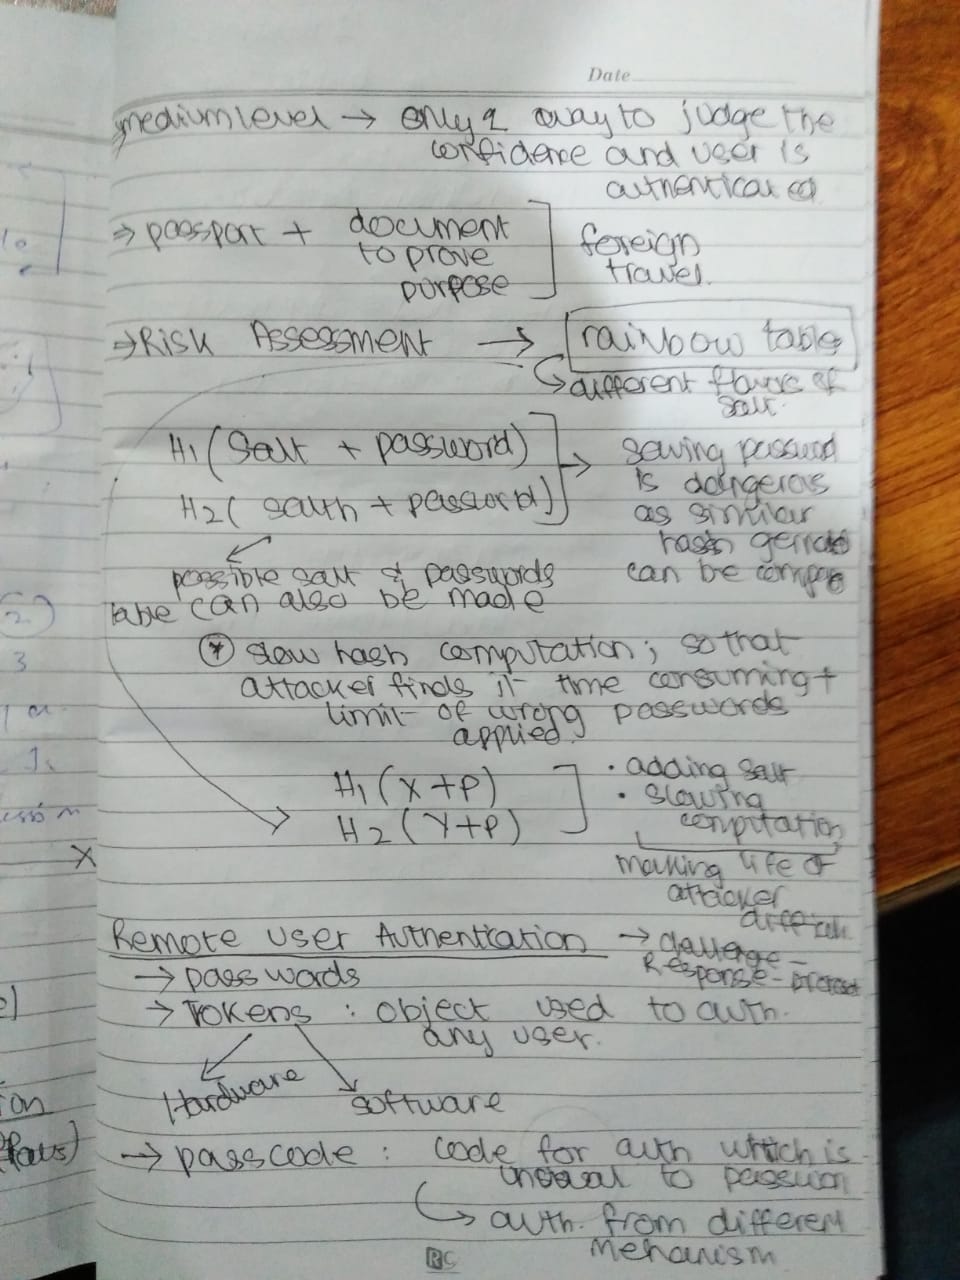 Date
medium level → only 1 way to judge the
confidence and user is
authenticated
⇒ passport + document
to prove
purpose
foreign
travel.
⇒ Risk Assessment → rainbow table
different flavors of
salt.
H1 (Salt + password)
H2 (salth + password)
saving password
is dangerous
as similar
hash
can be
possible salt & passwords
table can also be made
* slow hash computation; so that
attacker finds it time consuming +
limit of wrong passwords
applied.
H1 (x+p)
H2 (Y+p)
• adding salt
• slowing
computation
making life of
attacker
Remote User Authentication →
Response-
→ passwords
→ Tokens : object used to auth.
any user.
Hardware
software
→ passcode : code for auth which is
to
auth. from different
mehanism
RC
3
X